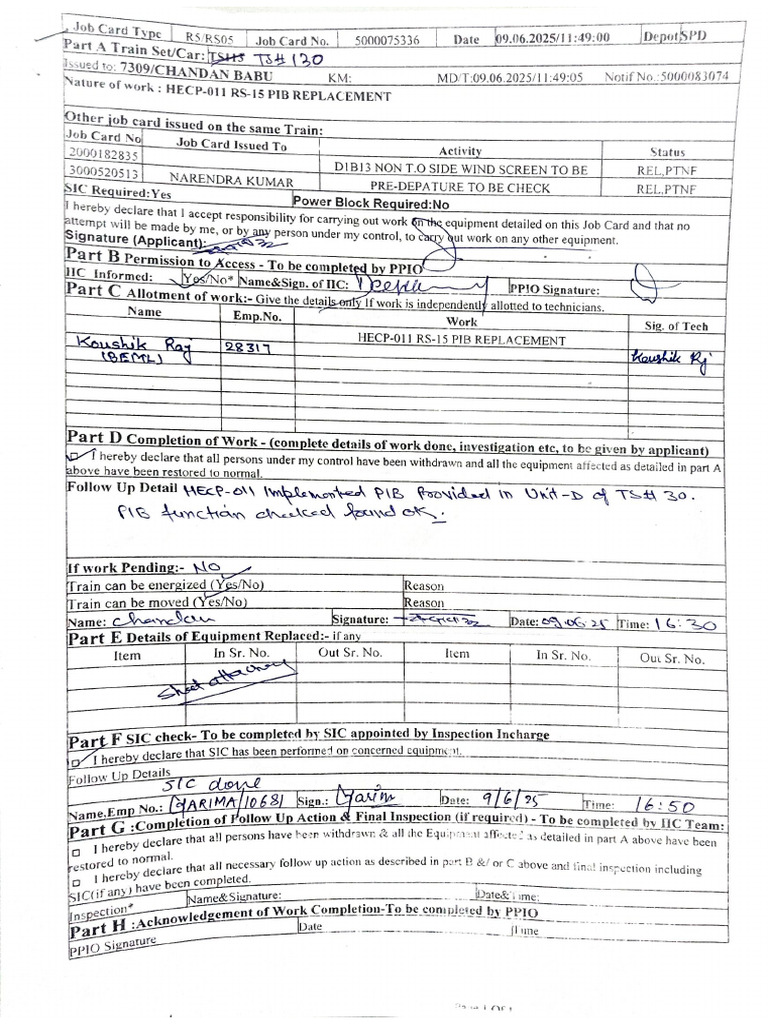 Job Card Type R5/RS05 Job Card No. 5000075336 Date 09.06.2025/11:49:00 Depot SPD
Part A Train Set/Car: TSH5 TS# 130
Issued to: 7309/CHANDAN BABU KM: MD/T:09.06.2025/11:49:05 Notif No.:5000083074
Nature of work : HECP-011 RS-15 PIB REPLACEMENT
Other job card issued on the same Train:
Job Card No Job Card Issued To Activity Status
2000182835 D1B13 NON T.O SIDE WIND SCREEN TO BE REL,PTNF
3000520513 NARENDRA KUMAR PRE-DEPATURE TO BE CHECK REL,PTNF
SIC Required:Yes Power Block Required:No
I hereby declare that I accept responsibility for carrying out work on the equipment detailed on this Job Card and that no
attempt will be made by me, or by any person under my control, to carry out work on any other equipment.
Signature (Applicant):
Part B Permission to Access - To be completed by PPIO
IIC Informed: Yes/No* Name&Sign. of IIC: PPIO Signature:
Part C Allotment of work:- Give the details only If work is independently allotted to technicians.
Name Emp.No. Work Sig. of Tech
Koushik Ray 28317 HECP-011 RS-15 PIB REPLACEMENT Koushik Rj
(BEML)
Part D Completion of Work - (complete details of work done, investigation etc, to be given by applicant)
I hereby declare that all persons under my control have been withdrawn and all the equipment affected as detailed in part A
above have been restored to normal.
Follow Up Detail HECP-011 Implemented PIB Provided in Unit-D of TS# 30.
PIB function checked found OK.
If work Pending:- NO
Train can be energized (Yes/No) Reason
Train can be moved (Yes/No) Reason
Name: Chandan Signature: Date: 09.06.25 Time: 16:30
Part E Details of Equipment Replaced:- if any
Item In Sr. No. Out Sr. No. Item In Sr. No. Out Sr. No.
Sheet attached
Part F SIC check- To be completed by SIC appointed by Inspection Incharge
I hereby declare that SIC has been performed on concerned equipment.
Follow Up Details
SIC done
Name,Emp No.: GARIMA/10681 Sign.: Garim Date: 9/6/25 Time: 16:50
Part G :Completion of Follow Up Action & Final Inspection (if required) - To be completed by IIC Team:
I hereby declare that all persons have been withdrawn & all the Equipment affected as detailed in part A above have been
restored to normal.
I hereby declare that all necessary follow up action as described in part B &/ or C above and final inspection including
SIC(if any) have been completed.
Inspection* Name&Signature: Date&Time:
Part H :Acknowledgement of Work Completion-To be completed by PPIO
PPIO Signature Date Time